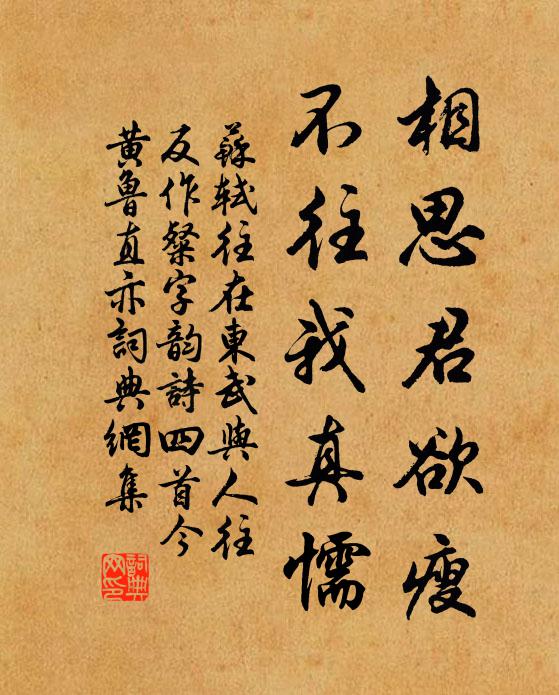 相思君欲瘦
不往我真懦
蘇軾往在東武與人往
反作粲字韵詩四首今
黄魯直亦詞典網集
詞典
网印